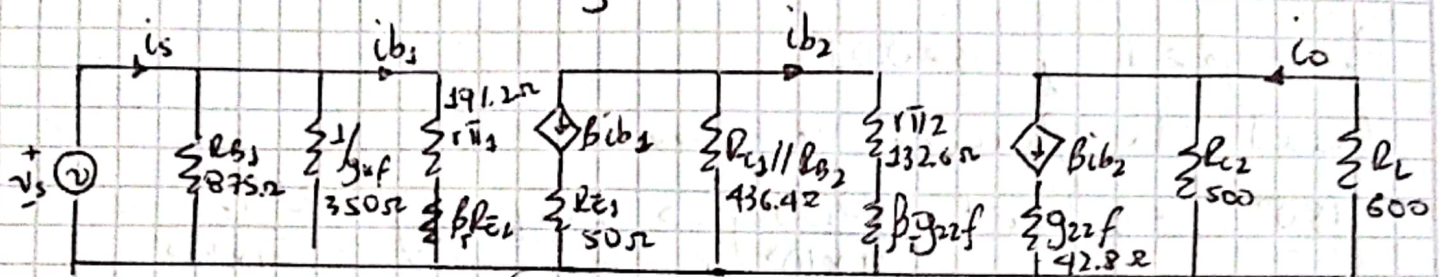 is
ib₁
ib₂
io
+
vs
-
v
RB₁
875Ω
1/g11f
350Ω
191.2Ω
rπ1
βRE₁
βib₁
RE₁
50Ω
Rc₁//RB₂
436.4Ω
rπ2
132.6Ω
β·g22f
βib₂
g22f
42.8Ω
Rc2
500
RL
600